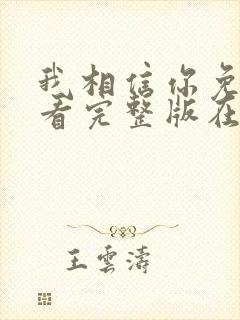 我相信你免
看完整版在
王雲濤